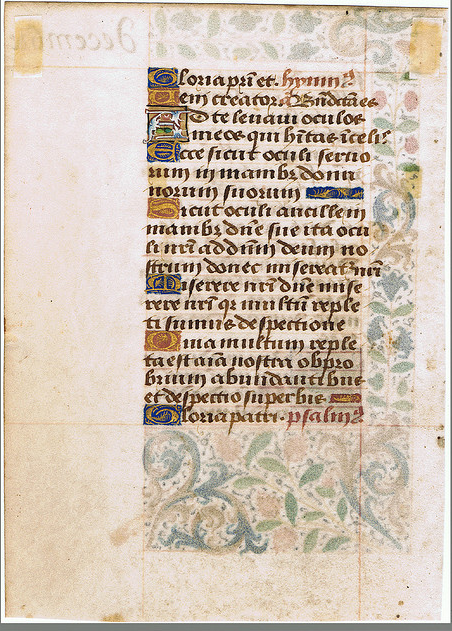 Gloria pr̄i et. hymnꝰ
Veni creator. a
Ad te leuaui oculos
meos qui hītas ī celis
Ecce sicut oculi seruo
rum in manibꝫ domi
norum suorum
Sicut oculi ancille in
manibꝫ dn̄e sue ita ocu
li nr̄i ad dn̄m deum no
strum donec misereat᷑ nr̄i
Miserere nr̄i dn̄e mise
rere nr̄i qꝛ multū reple
ti sumus despectione
Quia multum reple
ta est aīa nostra obpro
brium abundantibus
et despectio superbis
Gloria patri. psalmꝰ